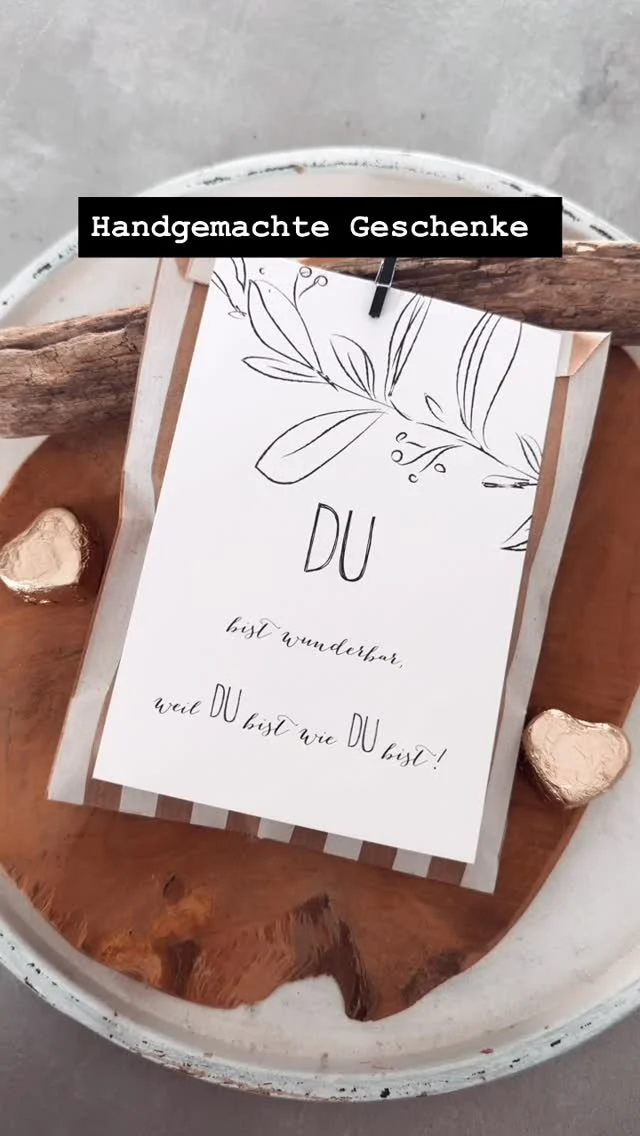 Handgemachte Geschenke
DU
bist wunderbar,
weil DU bist wie DU bist!